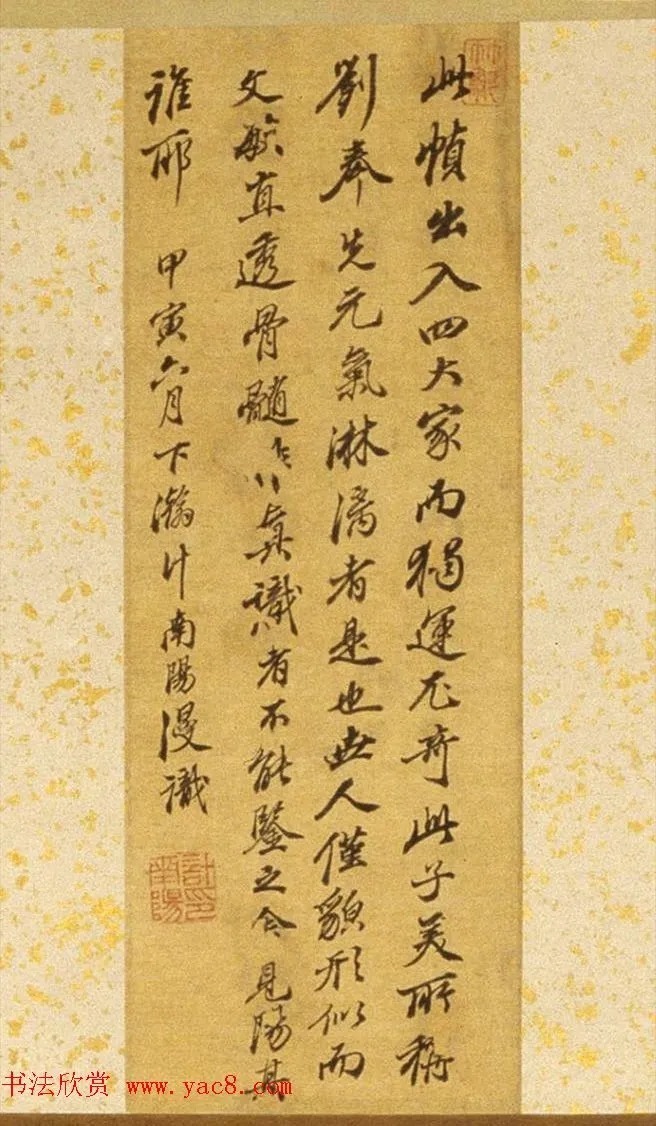 此幀出入四大家而獨運尤奇此子美所稱
劉奉先元氣淋漓者是也世人僅貌形似而
文敏直透骨髓識者不能鑒之今見陽其
誰耶 甲寅六月下澣計南陽漫識
計印南陽
书法欣赏 www.yac8.com